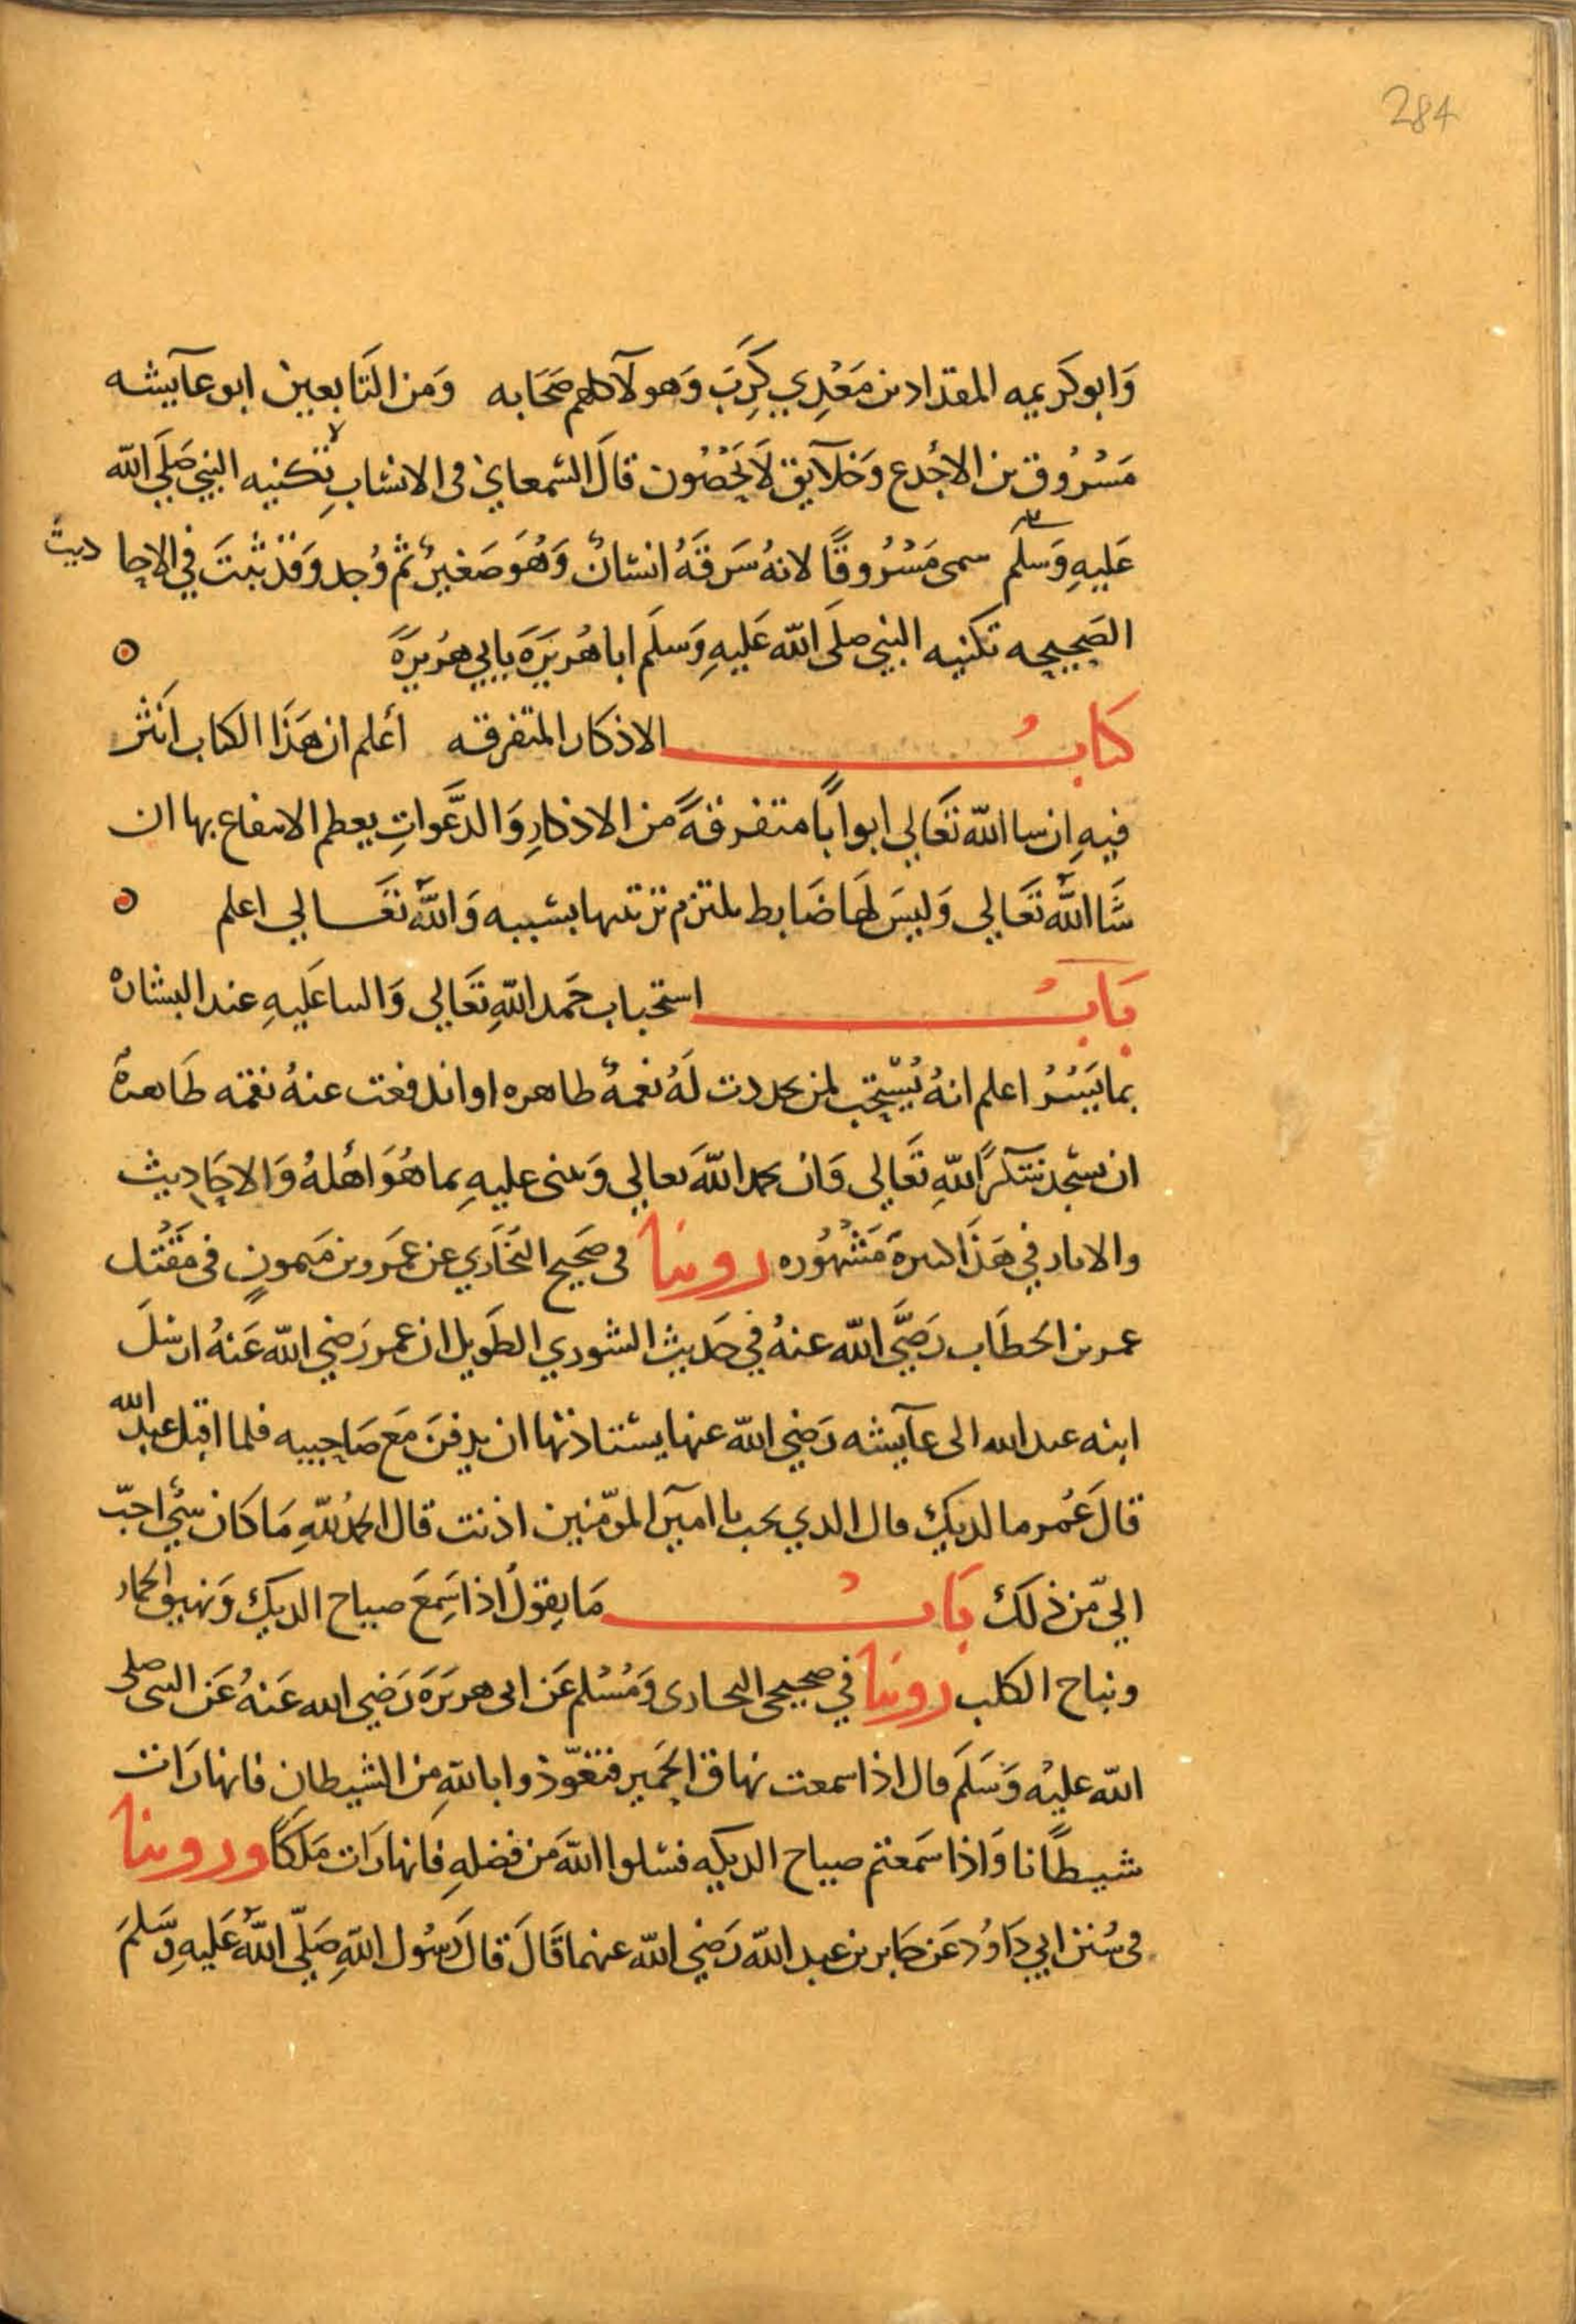 284
وَابو كَريمه المقداد بن مَعْدِي كَرِبَ وَهولآ كلهم صَحَابه وَمن التَابعين ابو عآيشه
مَسْرُوق بن الاجْدع وَخلآيق لَا يُحْصَون قالَ السمعاني فى الانساب تكنيه النبي صَلي الله
عَليهِ وَسلّم سمى مَسْرُوقًا لانهُ سَرقَهُ انسَانٌ وَهُوَ صَغيرٌ ثم وُجد وَقد ثبتَ في الاحاديث
الصَحيحه تكنيه النبي صلى الله عَليهِ وَسلم ابا هُريرَة بابي هُريرَة
كتابُ الاذكار المتفرقه أعلم ان هَذا الكتاب أنثر
فيهِ ان سا الله تعَالي ابوابًا متفرقةً من الاذكارِ وَالدَّعواتِ يعطم الانتفاع بها ان
شَا اللهُ تعَالي وَليسَ لهَا ضَابط يلتزم ترتيبها بسببه وَاللهُ تعَالي اعلم
بَابُ استحباب حَمد اللهِ تعَالي وَالثنا عَليهِ عند البشاره
بما يَسُرُ اعلم انهُ يُسْتحب لمن تجددت لَهُ نعمةٌ طاهره او اندفعت عنهُ نقمه طَاهرةٌ
ان يسْجد شكرًا للهِ تعَالي وَان يحمد اللهَ تعالي وَيثنى عليهِ بما هُوَ اهْلهُ وَالاحَاديث
والاثار في هَذا كثيرة مَشْهُوره روينا فى صَحيح البخَاري عن عَمرو بن مَيمونٍ فى مَقتل
عمر بن الخطَاب رَضيَ الله عنهُ في حَديث الشوري الطَويل ان عمر رَضي الله عَنهُ ارسَلَ
ابنه عبد الله الى عآيشه رَضي الله عنها يستاذنها ان يدفنَ مَع صَاحبيه فلما اقبل عبد الله
قالَ عُمر ما لديك قال الذي تحب يا اميَر المؤمنين اذنت قال الحمدُ للهِ مَا كان شيٌ احبّ
اليّ من ذلك بَابُ مَا يقولُ اذا سَمعَ صياح الديك وَنهيق الحمار
ونباح الكلب روينا في صحيحى البخارى وَمُسْلم عَن ابى هريَرَة رَضي الله عَنهُ عَن النبى صلى
الله عليْه وَسَلَم قال اذا سمعت نهاق الحَمير فتعَوّذوا باللهِ من الشيطان فانها رَات
شيطَانا وَاذا سَمعتم صياح الديكه فسلوا اللهَ من فضلهِ فَانها رَات مَلَكًا وروينا
فى سُنن ابي دَاوُد عَن جَابر بن عبد الله رَضي الله عنهما قَالَ قالَ رَسُول اللهِ صَلّي اللهُ عَليهِ وَسَّلمَ